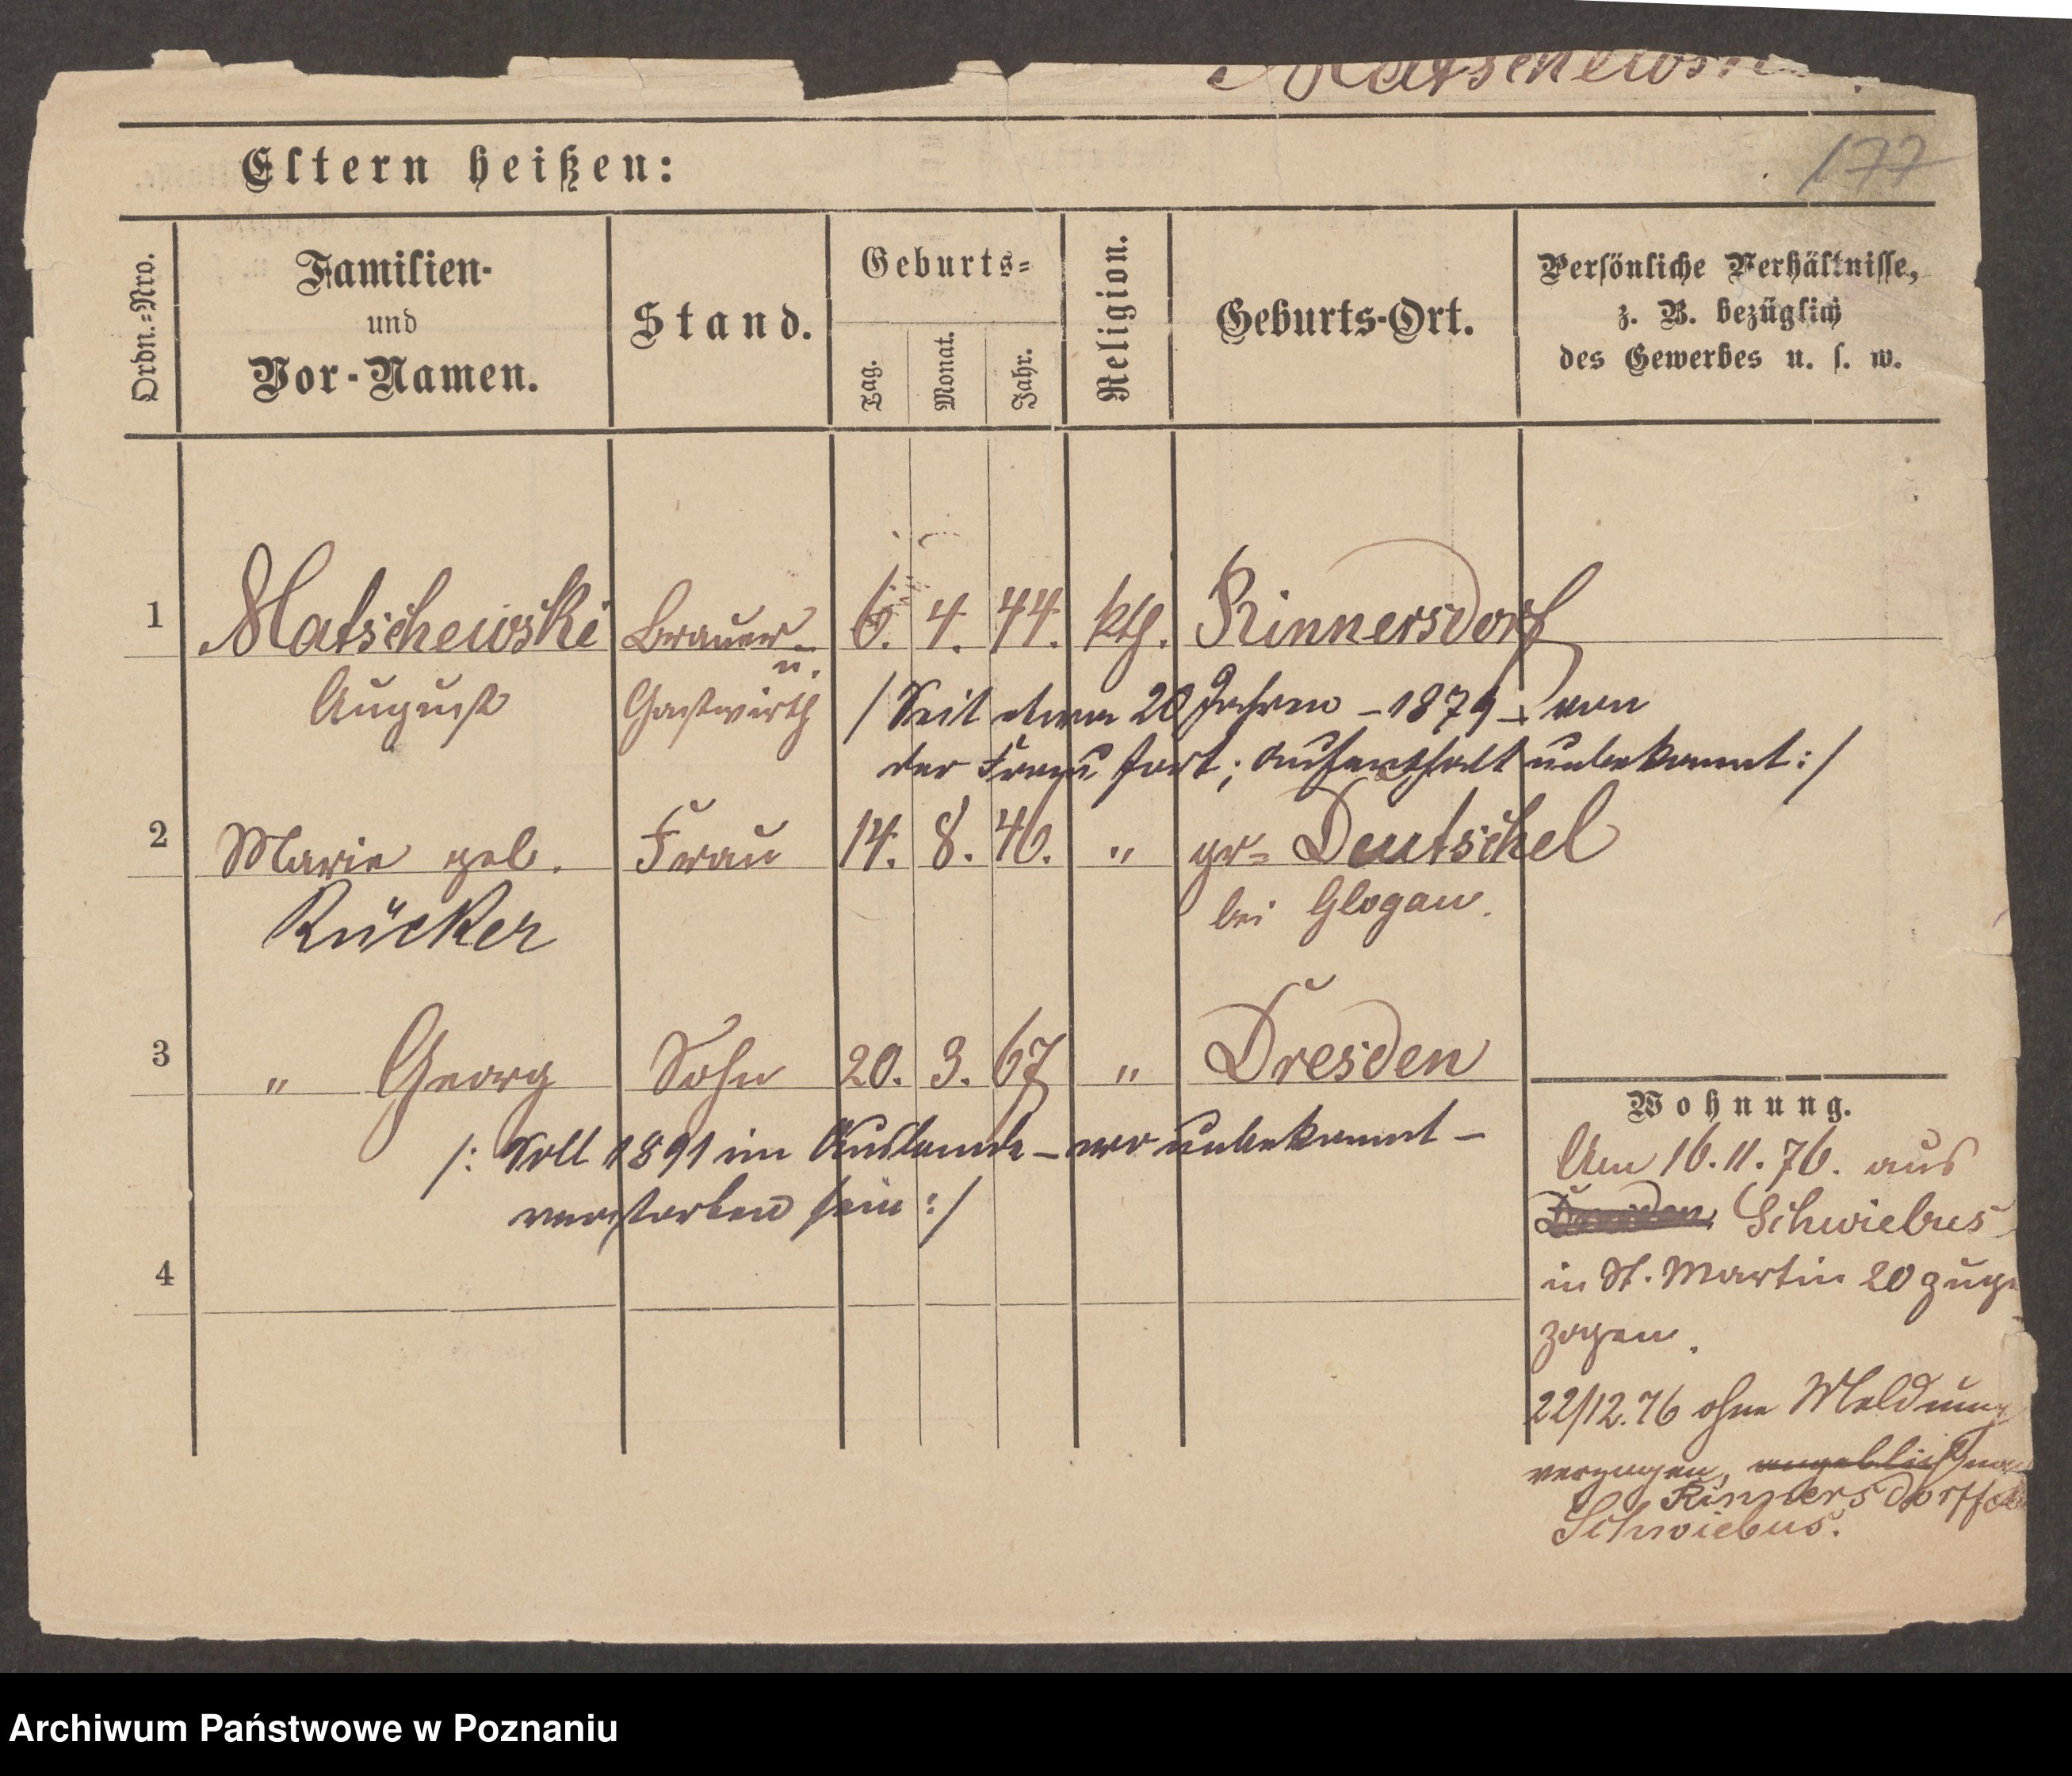 Matschewski
177
Eltern heißen:
Ordn.-Nro.
Familien-
und
Vor-Namen.
Stand.
Geburts-
Tag.
Monat.
Jahr.
Religion.
Geburts-Ort.
Persönliche Verhältnisse,
z. B. bezüglich
des Gewerbes u. s. w.
1 Matschewski Brauer 6. 4. 44. kth. Rinnersdorf
u.
August Gastwirth /Seit etwa 20 Jahren – 1879 – von
der Frau fort; Aufenthalt unbekannt:/
2 Marie geb. Frau 14. 8. 46. " gr= Deutschel
Rücker bei Glogau.
3 " Georg Sohn 20. 3. 67 " Dresden
/: soll 1891 im Auslande – wo unbekannt –
verstorben sein :/
4
Wohnung.
Am 16.11.76. aus
Dresden Schwiebus
in St. Martin 20 zuge
zogen.
22/12.76 ohne Meldung
verzogen, angeblich
Rinnersdorff
Schwiebus.
Archiwum Państwowe w Poznaniu